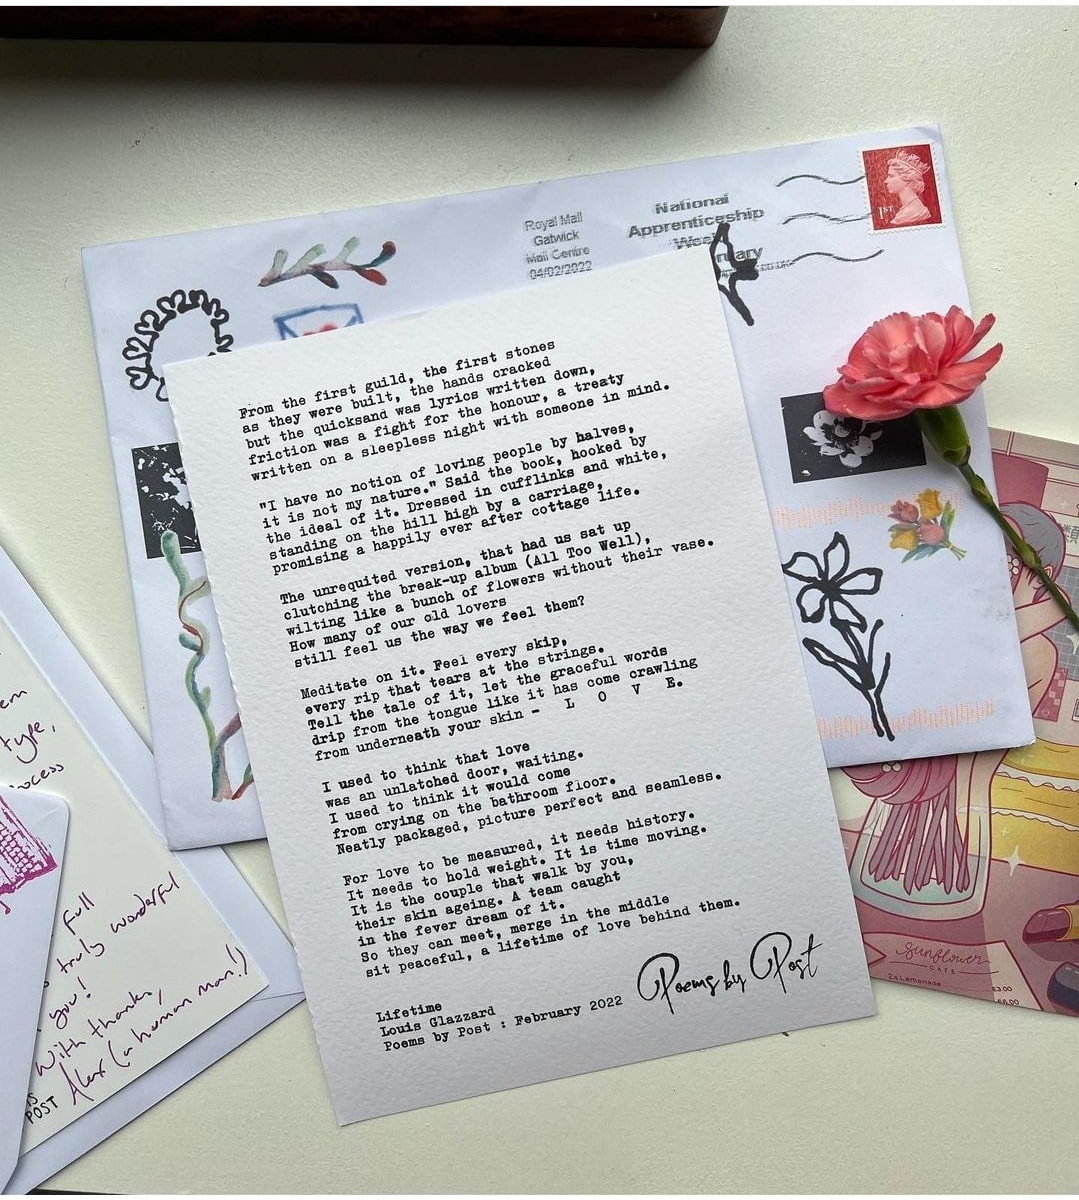 Royal Mail
Gatwick
Mail Centre
04/02/2022
National
Apprenticeship
1ST
From the first guild, the first stones
as they were built, the hands cracked
but the quicksand was lyrics written down,
friction was a fight for the honour, a treaty
written on a sleepless night with someone in mind.
"I have no notion of loving people by halves,
it is not my nature." Said the book, hooked by
the ideal of it. Dressed in cufflinks and white,
standing on the hill high by a carriage,
promising a happily ever after cottage life.
The unrequited version, that had us sat up
clutching the break-up album (All Too Well),
wilting like a bunch of flowers without their vase.
How many of our old lovers
still feel us the way we feel them?
Meditate on it. Feel every skip,
every rip that tears at the strings.
Tell the tale of it, let the graceful words
drip from the tongue like it has come crawling
from underneath your skin - L O V E.
I used to think that love
was an unlatched door, waiting.
I used to think it would come
from crying on the bathroom floor.
Neatly packaged, picture perfect and seamless.
For love to be measured, it needs history.
It needs to hold weight. It is time moving.
It is the couple that walk by you,
their skin ageing. A team caught
in the fever dream of it.
So they can meet, merge in the middle
sit peaceful, a lifetime of love behind them.
Lifetime
Louis Glazzard
Poems by Post : February 2022
Poems by Post
type,
full
truly wonderful
you!
With thanks,
Alex (a human man!)
POST
sunflower
CAFE
2x Lemonade
£3.00